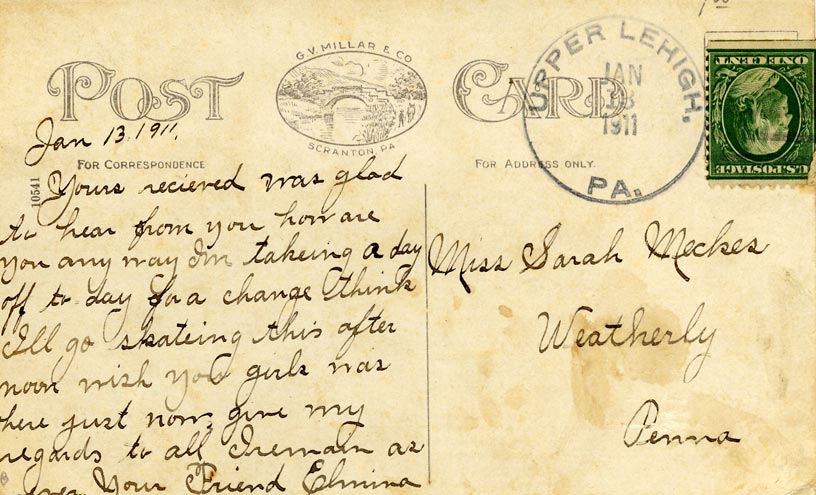 G.V. MILLAR & CO
SCRANTON, PA
POST CARD
UPPER LEHIGH,
JAN
13
1911
PA.
U.S. POSTAGE
ONE CENT
FOR CORRESPONDENCE
FOR ADDRESS ONLY.
10541
Jan 13, 1911,
Yours recieved was glad
to hear from you how are
you any way Im takeing a day
off to day for a change I think
Ill go skateing this after
noon wish you girls was
here just now, give my
regards to all I remain as
ever Your Friend Elmina
Miss Sarah Meckes
Weatherly
Penna